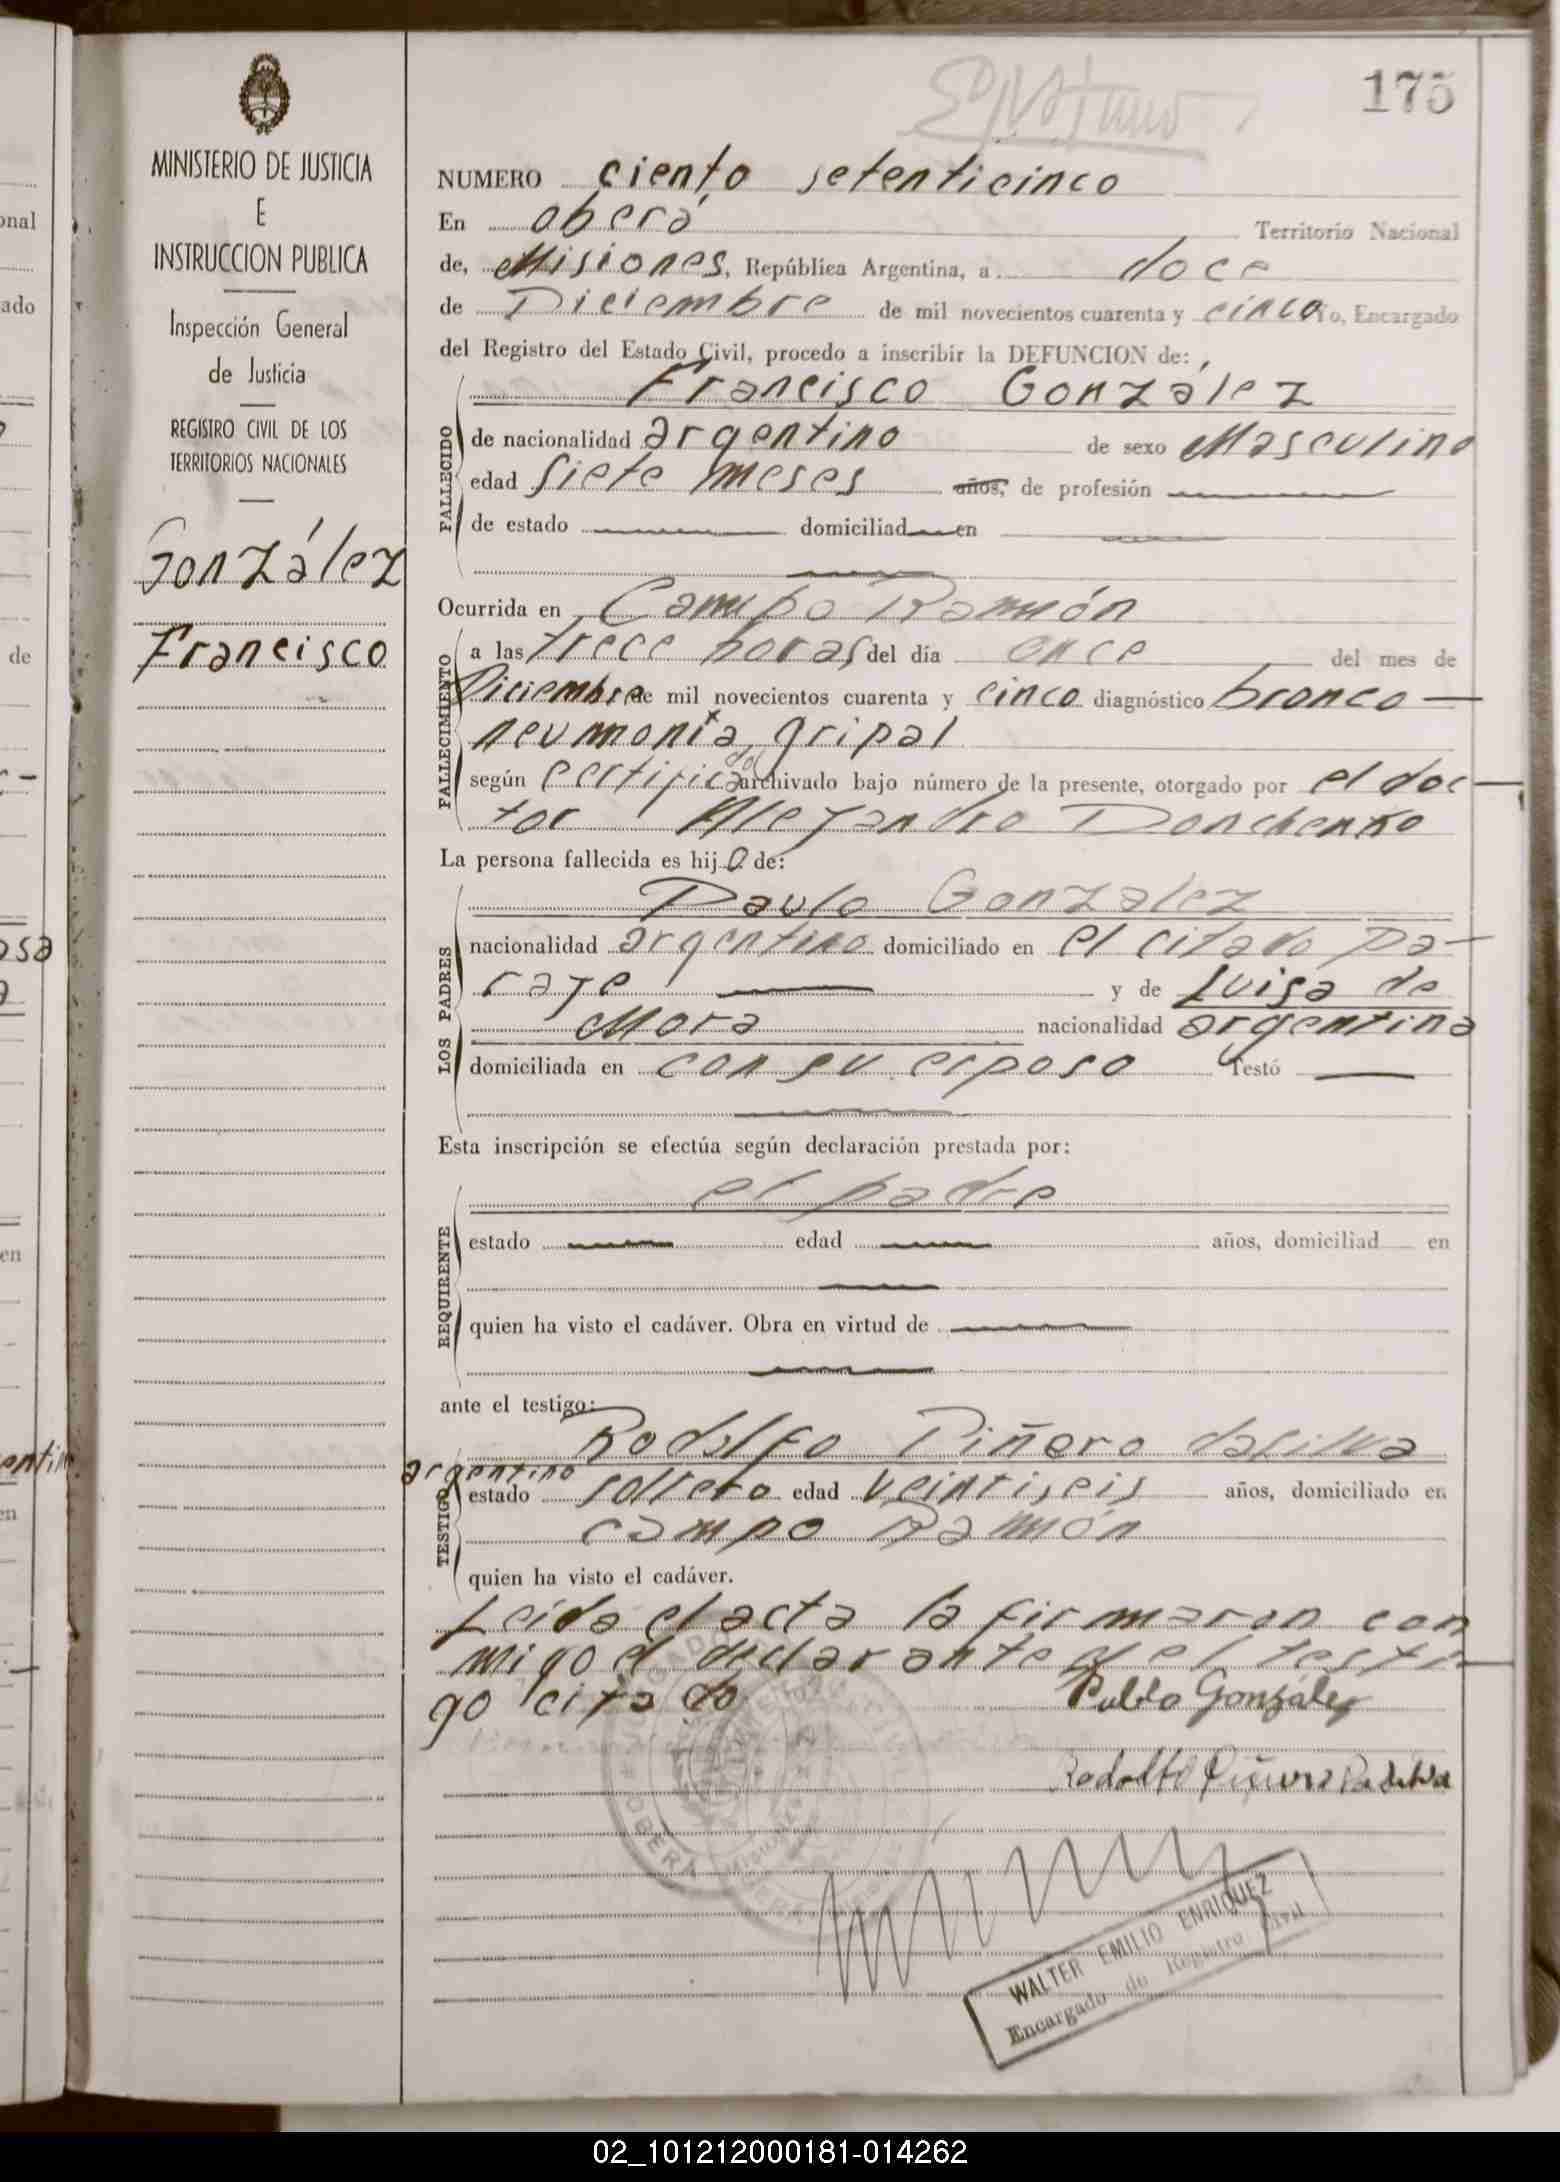 175
MINISTERIO DE JUSTICIA
E
INSTRUCCION PUBLICA
Inspección General
de Justicia
REGISTRO CIVIL DE LOS
TERRITORIOS NACIONALES
González
Francisco
NUMERO ciento setenticinco
En oberá Territorio Nacional
de, Misiones, República Argentina, a doce
de Diciembre de mil novecientos cuarenta y cinco Yo, Encargado
del Registro del Estado Civil, procedo a inscribir la DEFUNCION de:
Francisco González
FALLECIDO
de nacionalidad argentino de sexo Masculino
edad siete meses años, de profesión
de estado domiciliad en
Ocurrida en Campo Ramón
FALLECIMIENTO
a las trece horas del día once del mes de
Diciembre de mil novecientos cuarenta y cinco diagnóstico bronco —
neumonia gripal
según certificado archivado bajo número de la presente, otorgado por el doc —
tor Alejandro Donchenko
La persona fallecida es hijo de:
LOS PADRES
Paulo Gonzalez
nacionalidad argentino domiciliado en el citado pa —
raje y de Luisa de
Mora nacionalidad argentina
domiciliada en con su esposo Testó
Esta inscripción se efectúa según declaración prestada por:
REQUIRENTE
el padre
estado edad años, domiciliad en
quien ha visto el cadáver. Obra en virtud de
ante el testigo:
TESTIGO
Rodolfo Piñero dasilva
argentino
estado soltero edad veintiseis años, domiciliado en
campo Ramón
quien ha visto el cadáver.
Leída el acta la firmaron con
migo el declarante y el testi —
go citado
Pablo González
Rodolfo Piñero Dasilva
OBERA
WALTER EMILIO ENRIQUEZ
Encargado de Registro Civil
02_101212000181-014262